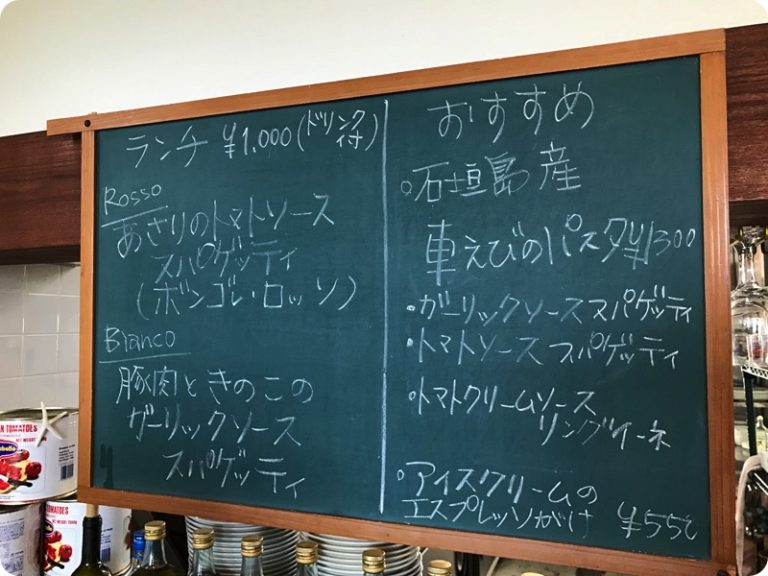 ランチ ¥1,000 (ドリンク付)
Rosso
あさりのトマトソース
スパゲッティ
(ボンゴレ・ロッソ)
Bianco
豚肉ときのこの
ガーリックソース
スパゲッティ
おすすめ
。石垣島産
車えびのパスタ ¥1300
・ガーリックソース スパゲッティ
・トマトソース スパゲッティ
・トマトクリームソース
リングイーネ
。アイスクリームの
エスプレッソがけ ¥550
TOMATOES